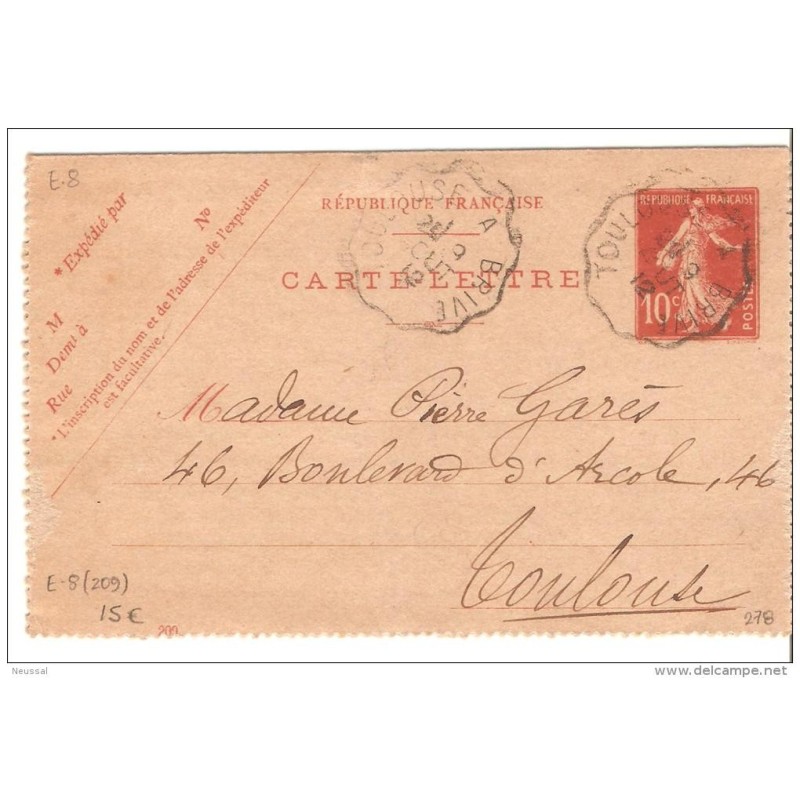 E-8
* Expédié par
Nº
M
Demt à
Rue
* L'inscription du nom et de l'adresse de l'expéditeur
est facultative.
RÉPUBLIQUE FRANÇAISE
CARTE-LETTRE
TOULOUSE A BRIVE
RÉPUBLIQUE FRANÇAISE
10 c
POSTES
TOULOUSE A BRIVE
Madame Pierre Garès
46, Boulevard d'Arcole, 46
Toulouse
E-8 (209)
15 €
278
Neussal
www.delcampe.net